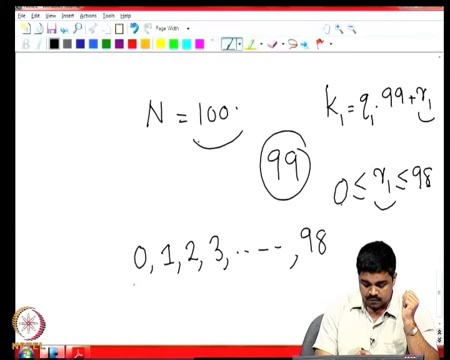 File Edit View Insert Actions Tools Help
Page Width
N = 100.
k₁ = q₁ · 99 + r₁
99
0 ≤ r₁ ≤ 98
0, 1, 2, 3, ..---, 98
NPTEL